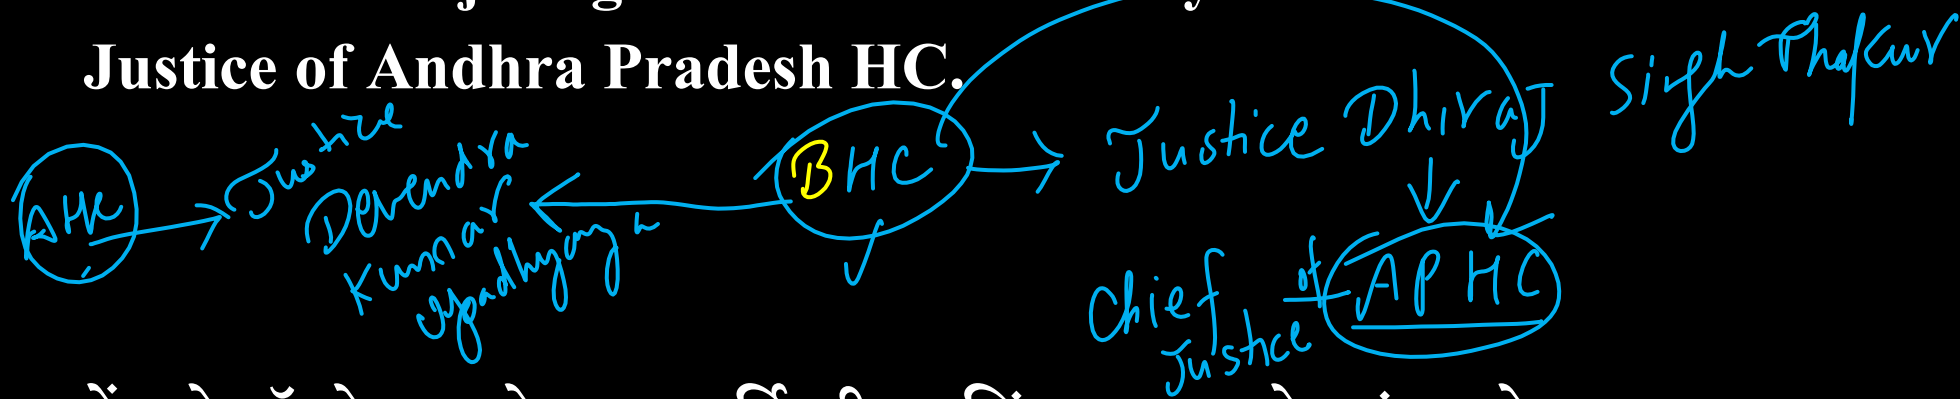 Justice of Andhra Pradesh HC.
AHC
Justice
Devendra
Kumar
Upadhyay
BHC
Justice Dhiraj Singh Thakur
Chief
Justice
of
APHC